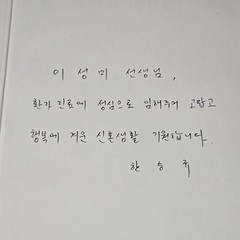 이 성 미 선생님,
환자 진료에 성심으로 임해주어 고맙고
행복에 겨운 신혼생활 기원합니다.
한 승 규